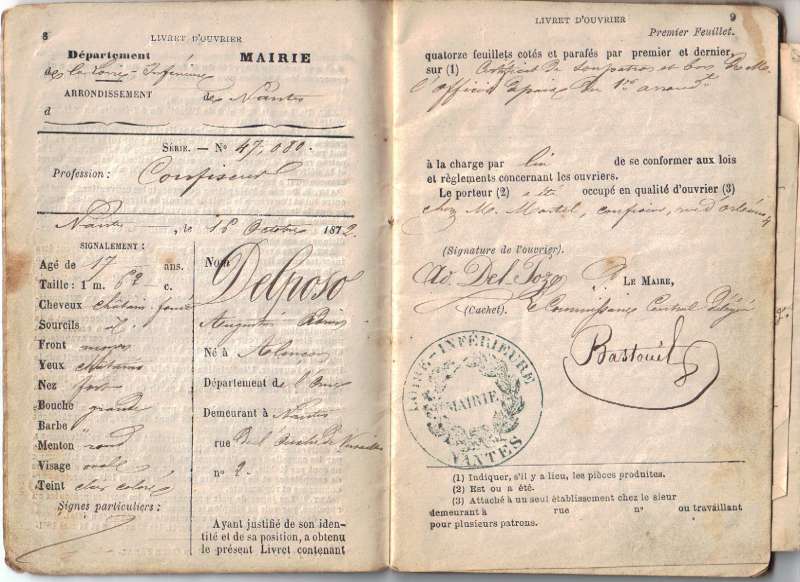 8
LIVRET D'OUVRIER
Département
de la Loire-Inférieure
MAIRIE
ARRONDISSEMENT
de Nantes
d
SÉRIE. — No 47,080.
Profession :
Confiseur
Nantes, le 16 Octobre 1872.
SIGNALEMENT :
Agé de 17 ans.
Taille : 1 m. 62 c.
Cheveux châtain foncé
Sourcils id
Front moyen
Yeux châtains
Nez fort
Bouche grande
Barbe "
Menton rond
Visage ovale
Teint clair coloré
Signes particuliers :
Nom
Delposo
Augustin
Né à Alençon
Département de l'Orne
Demeurant à Nantes
rue
no 2.
Ayant justifié de son iden-
tité et de sa position, a obtenu
le présent Livret contenant
LIVRET D'OUVRIER
9
Premier Feuillet.
quatorze feuillets cotés et parafés par premier et dernier,
sur (1) Certificat de son patron et
l'officier de paix du 1er arrondt
à la charge par lui de se conformer aux lois
et règlements concernant les ouvriers.
Le porteur (2) a été occupé en qualité d'ouvrier (3)
chez M. Martel, confiseur, rue d'orléans, 4
(Signature de l'ouvrier).
Ad. Del Pozo
P. LE MAIRE,
(Cachet).
le Commissaire Central délégué
Bastouil
LOIRE-INFÉRIEURE
MAIRIE
NANTES
(1) Indiquer, s'il y a lieu, les pièces produites.
(2) Est ou a été.
(3) Attaché à un seul établissement chez le sieur
demeurant à rue no ou travaillant
pour plusieurs patrons.